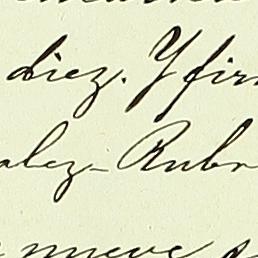 diez. Y fir
alez - Rubr
nueve